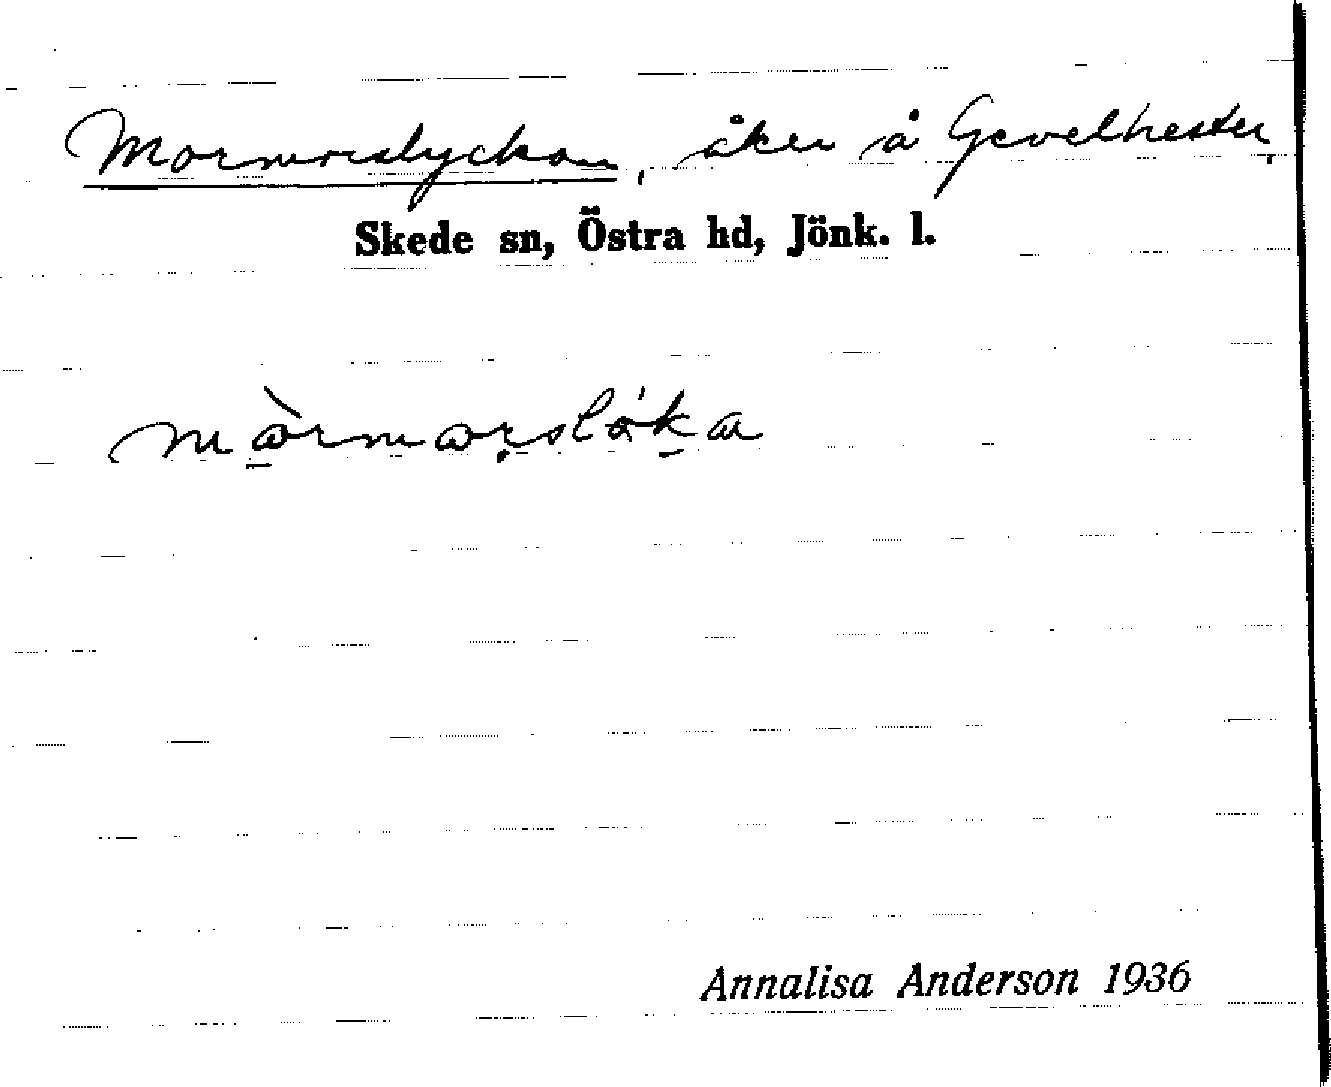 Mormorslyckan, åker å Gevelhester,
Skede sn, Östra hd, Jönk. l.
Annalisa Anderson 1936